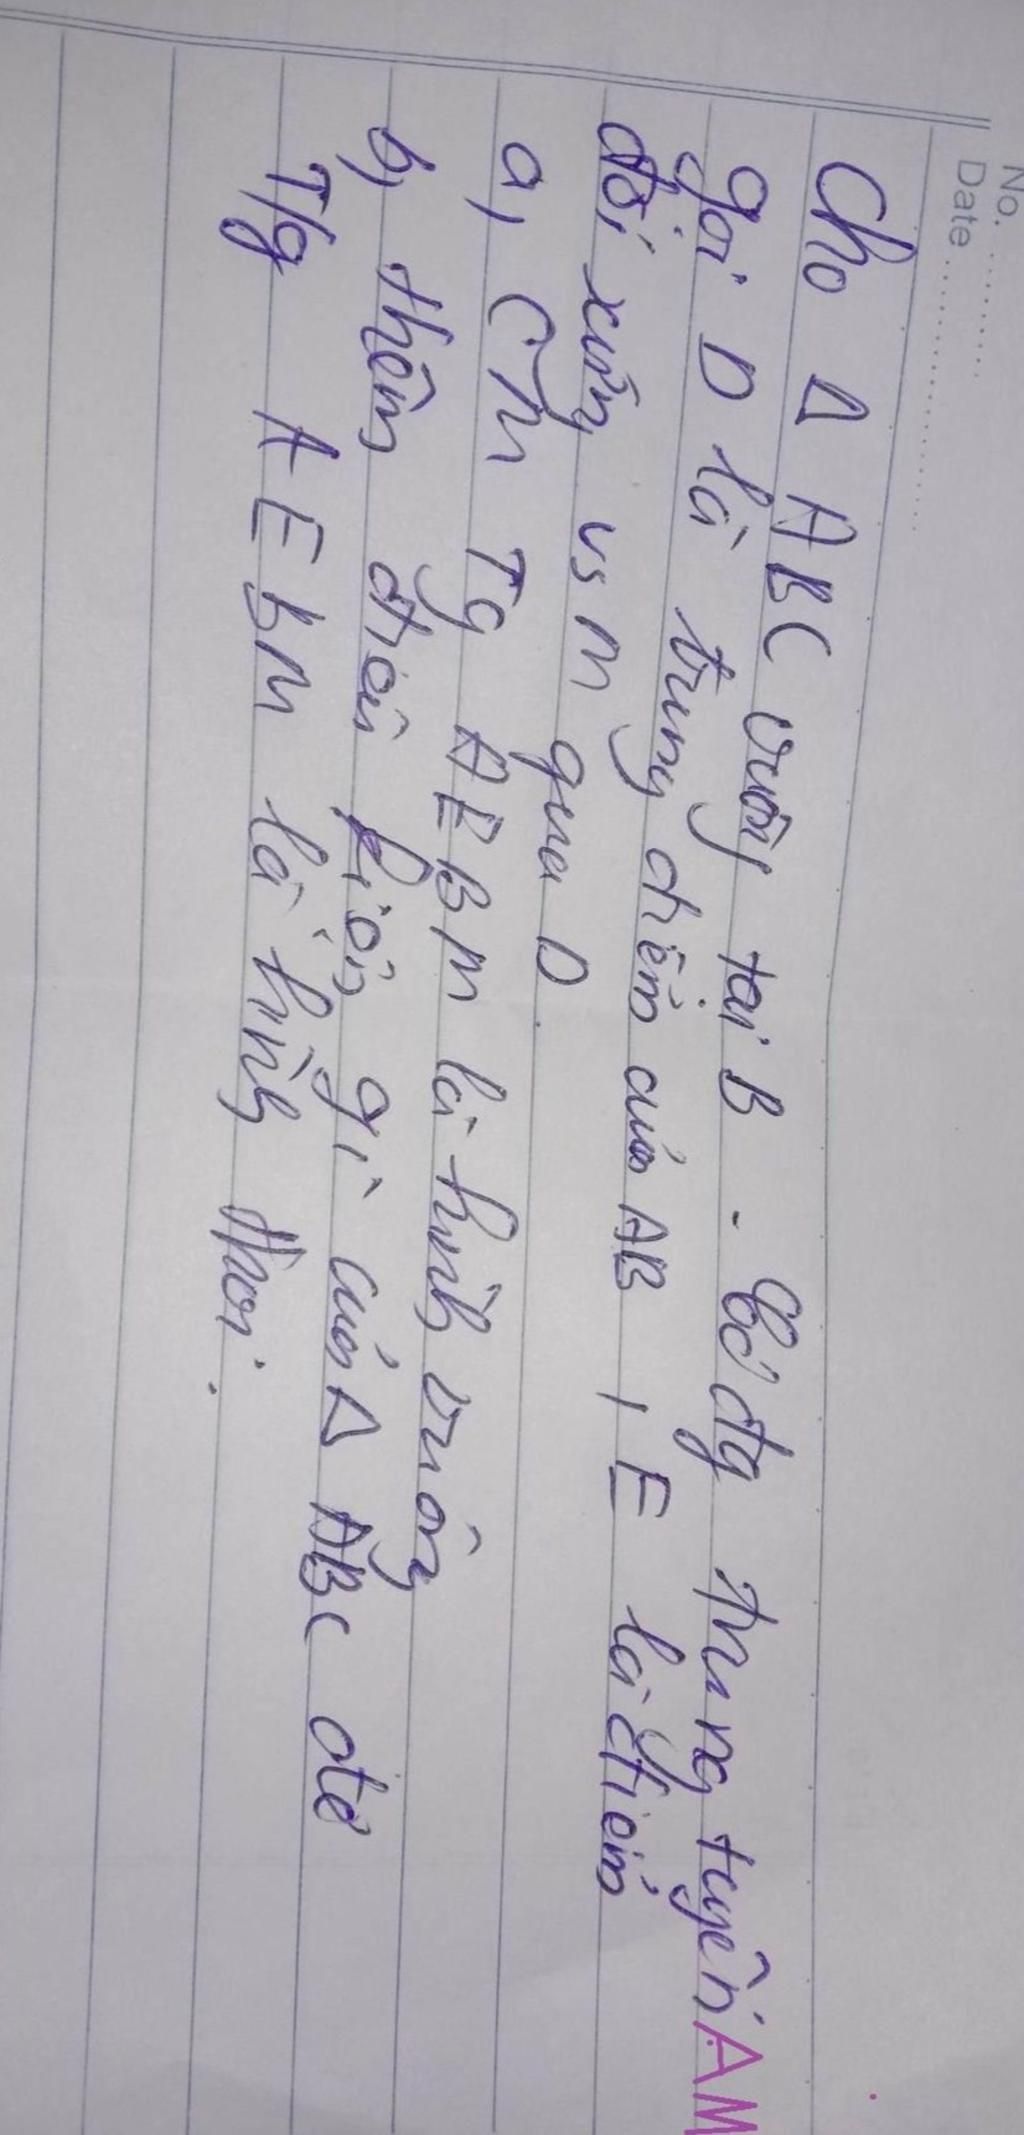 No.
Date
Cho Δ ABC vuông tại B. Có đg trung tuyến AM
gọi D là trung điểm của AB, E là điểm
đối xứng vs M qua D.
a, CM Tg AEBM là hình vuông
b, thêm điều kiện gì của Δ ABC để
T/g AEBM là hình thoi.